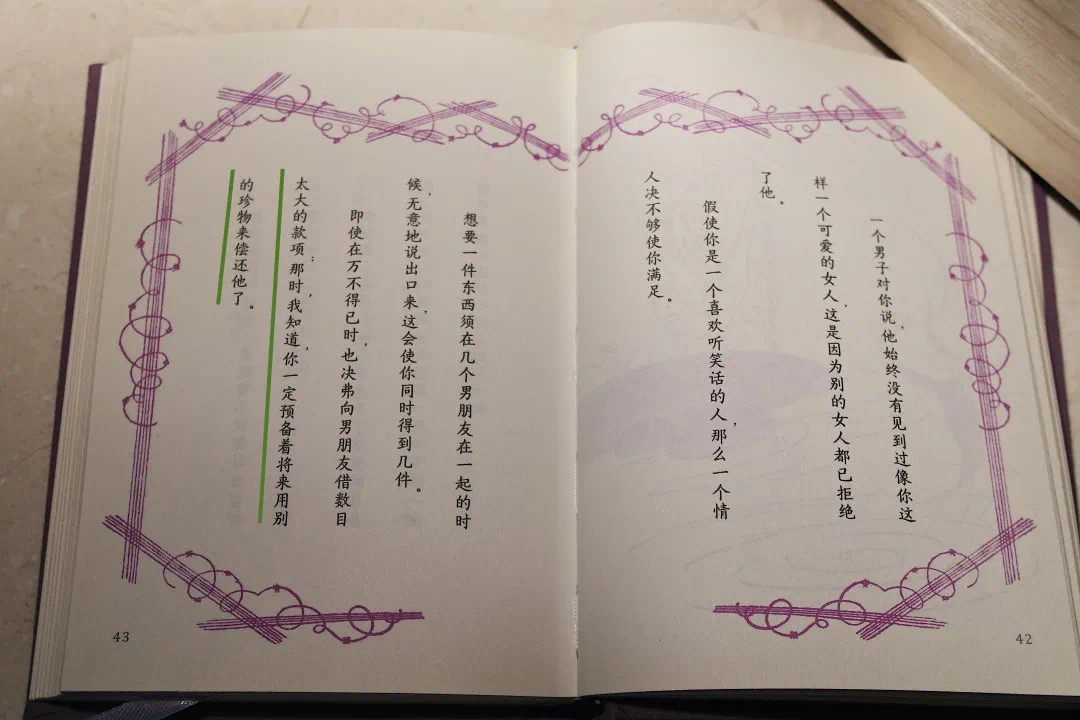 一个男子对你说，他始终没有见到过像你这
样一个可爱的女人，这是因为别的女人都已拒绝
了他。
假使你是一个喜欢听笑话的人，那么一个情
人决不够使你满足。
42
想要一件东西须在几个男朋友在一起的时
候，无意地说出口来，这会使你同时得到几件。
即使在万不得已时，也决弗向男朋友借数目
太大的款项；那时，我知道，你一定预备着将来用别
的珍物来偿还他了。
43